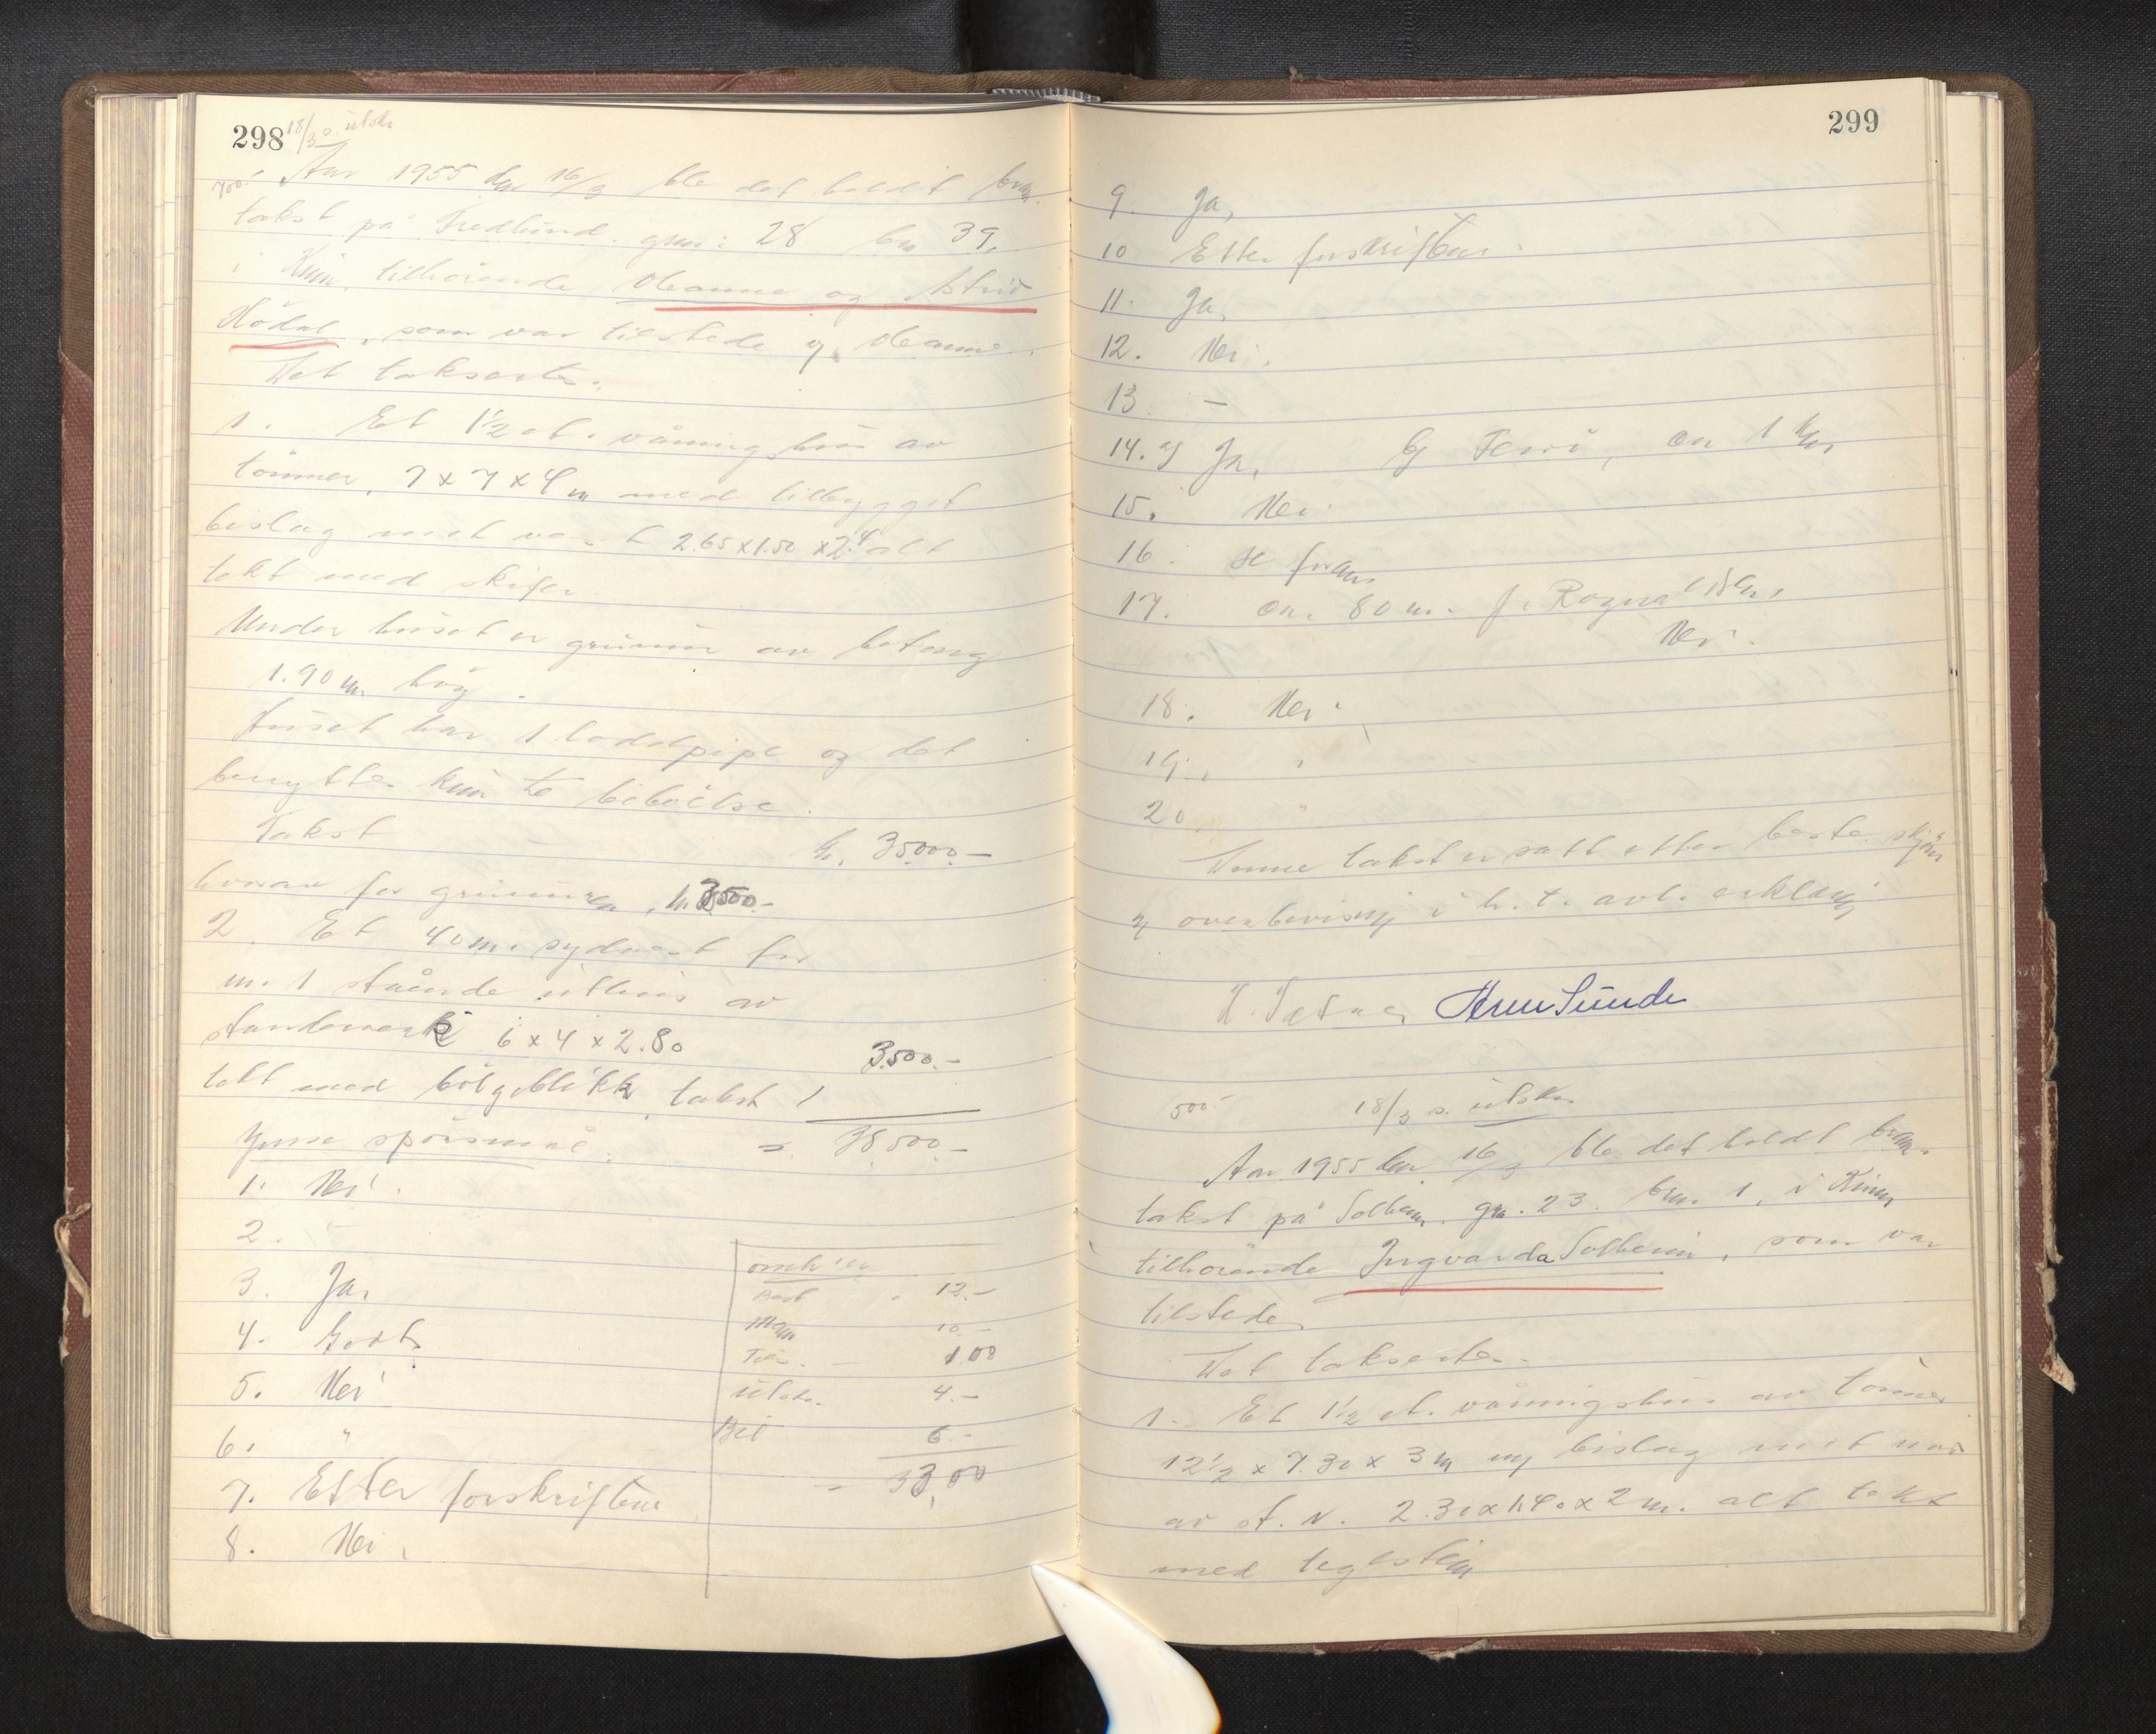 298 18/3 s. utskr
700.- Aar 1955 den 16/3 ble det holdt bran.
takst på Fredlund. gnr: 28 bn 39,
i Kinn, tilhörende Oleanna og Astrid
Hödal, som var tilstede v/ Oleanna.
Det takserte:
1. Et 1½ et. våningshus av
tömmer, 7 x 7 x 4 m med tilbygget
bislag mot vest 2.65 x 1.50 x 2.4 alt
tekt med skifer
Under huset er grunnm av betong
1.90 m. høg.
Huset har 1 loddpipe og det
benyttes kun til beboelse.
Takst kr. 35000.-
hvorav for grunnmuren kr. 3500.-
2. Et 40 m. sydvest for
nr. 1 stående uthus av
standverk 6 x 4 x 2.80
tekt med bölgeblikk, takst 3500.-
Ymse spörsmål. = 38,500.-
1. Nei.
2.
3. Ja,
4. Godt,
5. Nei
6. "
7. Etter forskriften
8. Nei,
Omk
Best 12.-
Mann 10.-
1.00
Utskr. 4.-
Bil 6.-
= 33,00
299
9. Ja,
10 Etter forskriften.
11. Ja,
12. Nei.
13. —
14. a/ Ja, b/ , ca 1 km
15. Nei.
16. se foran.
17. ca. 80 m. f.
Nei.
18. Nei.
19. "
20 "
Denne takst er satt etter beste skjönn
og overbevisning i h. t. avl. erklæring
Sunde
500.- 18/3 s. utskr.
Aar 1955 den 16/3 ble det holdt brann.
takst på Solheim, gnr. 23. brn. 1, i Kinn
tilhörende Ingvarda Solheim, som var
tilstede.
Det takserte:
1. Et 1½ et. våningshus av tömmer
12½ x 7.30 x 3 m m/ bislag mot nord
av st. v. 2.30 x 1.40 x 2 m. alt tekt
med teglstein